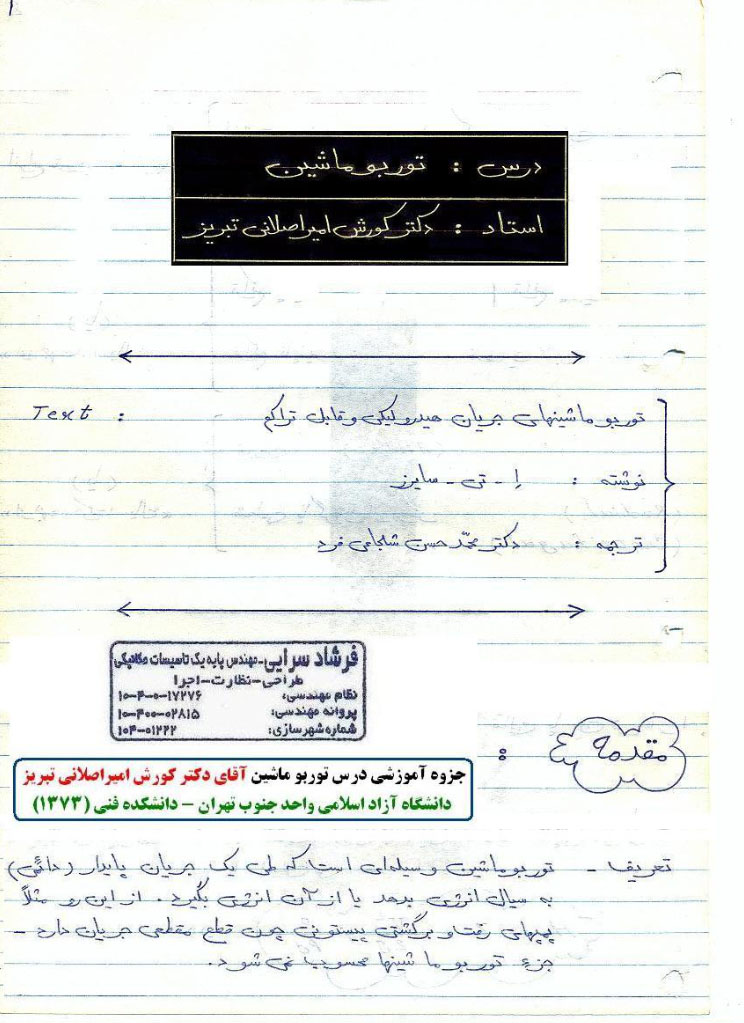 درس : توربو ماشین
استاد : دکتر کورش امیراصلانی تبریز
توربو ماشینهای جریان هیدرولیکی و قابل تراکم : Text
نوشته : اِ - تی - سایرز
ترجمه : دکتر محمّد حسن شجاعی فرد
فرشاد سرایی-مهندس پایه یک تاسیسات مکانیکی
طراحی-نظارت-اجرا
نظام مهندسی: ۱۰-۴-۰-۱۷۲۷۶
پروانه مهندسی: ۱۰-۴۰۰-۰۲۸۱۵
شماره شهرسازی: ۱۰۴-۰۱۲۲۲
مقدمه :
جزوه آموزشی درس توربو ماشین آقای دکتر کورش امیراصلانی تبریز
دانشگاه آزاد اسلامی واحد جنوب تهران – دانشکده فنی (۱۳۷۳)
تعریف - توربوماشین وسیله‌ای است که طی یک جریان پایدار (دائمی)
به سیال انرژی بدهد یا از آن انرژی بگیرد. از این رو مثلاً
پمپهای رفت و برگشتی پیستونی چون قطع مقطعی جریان دارد -
جزء توربو ماشینها محسوب نمی شود.